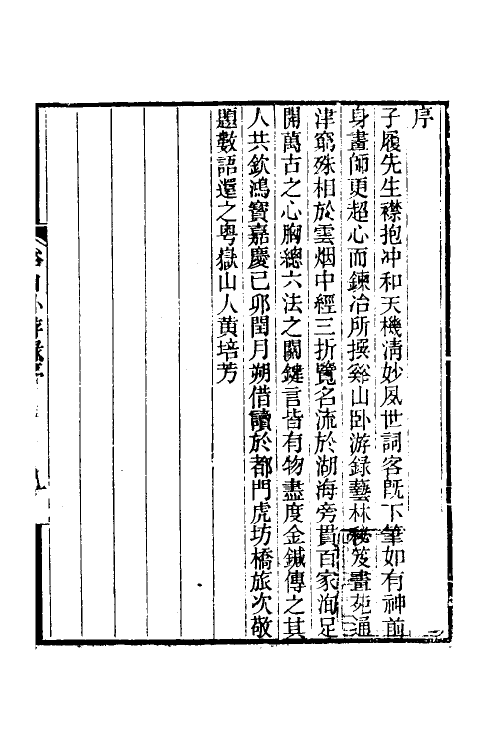 序
子履先生襟抱冲和天機淸妙夙世詞客旣下筆如有神前
身畫師更超心而鍊冶所撰谿山卧游錄藝林秘笈畫苑通
津窮殊相於雲烟中經三折覽名流於湖海旁貫百家洵足
開萬古之心胸總六法之關鍵言皆有物盡度金鍼傳之其
人共欽鴻寶嘉慶己卯閏月朔借讀於都門虎坊橋旅次敬
題數語還之粵嶽山人黃培芳